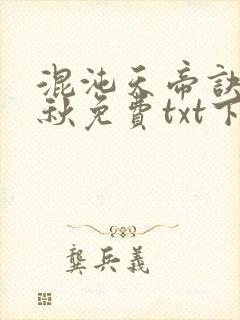 混沌天帝訣
秋免費txt下
龔兵義